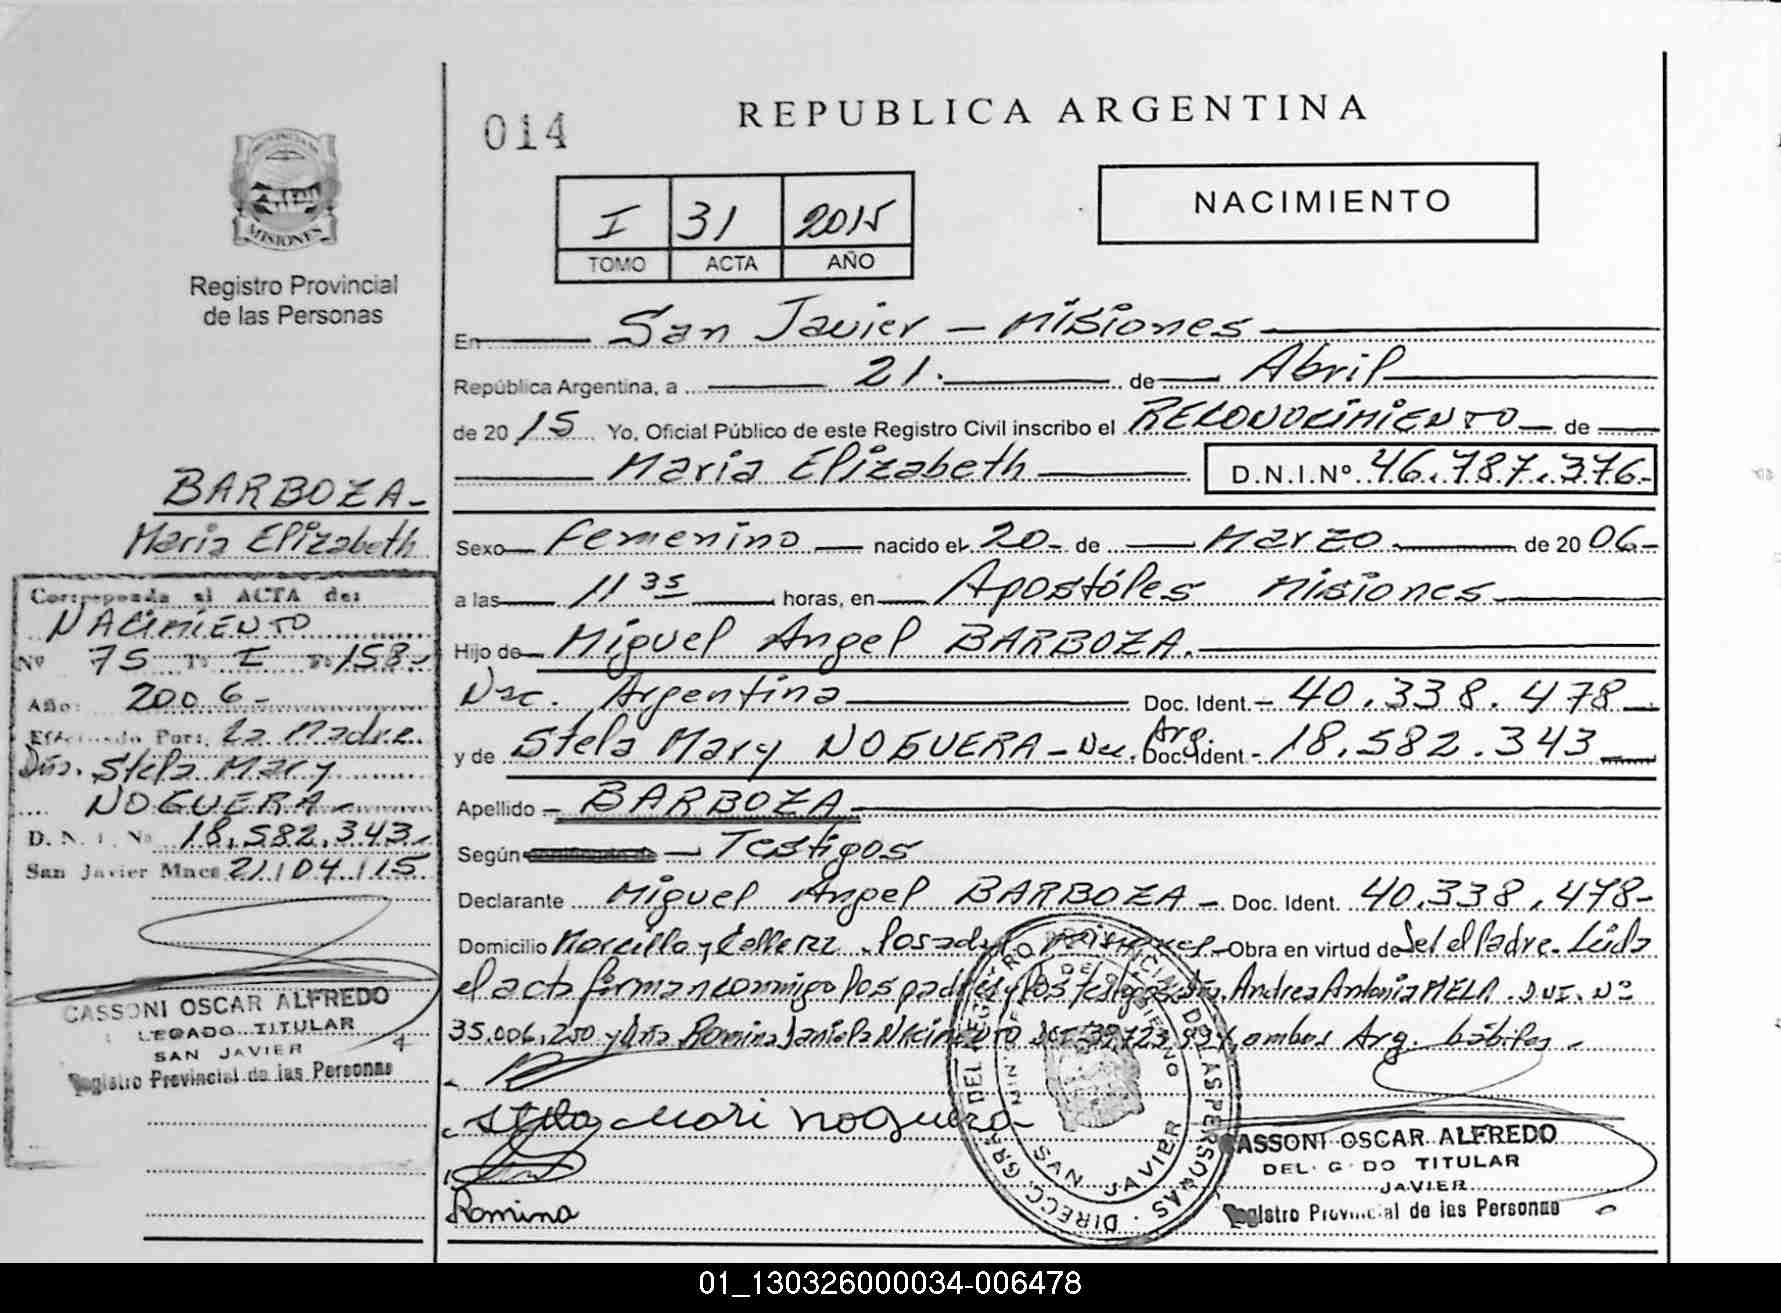 014
REPUBLICA ARGENTINA
NACIMIENTO
I 31 2015
TOMO ACTA AÑO
MISIONES
Registro Provincial
de las Personas
En San Javier - Misiones
República Argentina, a 21. de Abril
de 2015 Yo, Oficial Público de este Registro Civil inscribo el RECONOCIMIENTO de
Maria Elizabeth D.N.I.Nº 46.787.376.-
Sexo Femenino nacido el 20- de Marzo de 2006-
a las 11 35 horas, en Apostóles Misiones
Hijo de Miguel Angel BARBOZA.
Nac. Argentina Doc. Ident. 40.338.478
y de Stela Mary NOGUERA - Nac. Arg. Doc. Ident 18.582.343
Apellido BARBOZA
Según Testigos
Declarante Miguel Angel BARBOZA - Doc. Ident. 40.338.478-
Domicilio Obra en virtud de Ser el Padre. Leida
el acta firman conmigo los padres y los testigos Andrea Antonia MELA. DNI. Nº
35.006.250 y Romina Daniela ambos Arg. hábiles -
Stela Mari Noguera
Romina
CASSONI OSCAR ALFREDO
DELEGADO TITULAR
JAVIER
Registro Provincial de las Personas
DIRECC. GRAL DEL REGISTRO PROVINCIAL DE LAS PERSONAS
MIN DE GOBIERNO
SAN JAVIER
BARBOZA-
Maria Elizabeth
Corresponde al ACTA de:
NACIMIENTO
Nº 75 Tº I Fº 158-
Año: 2006-
Efectuado Por: La Madre
Dña. Stela Mary
NOGUERA-
D. N. I. Nº 18.582.343-
San Javier Mnes 21/04/15
CASSONI OSCAR ALFREDO
DELEGADO TITULAR
SAN JAVIER
Registro Provincial de las Personas
01_130326000034-006478